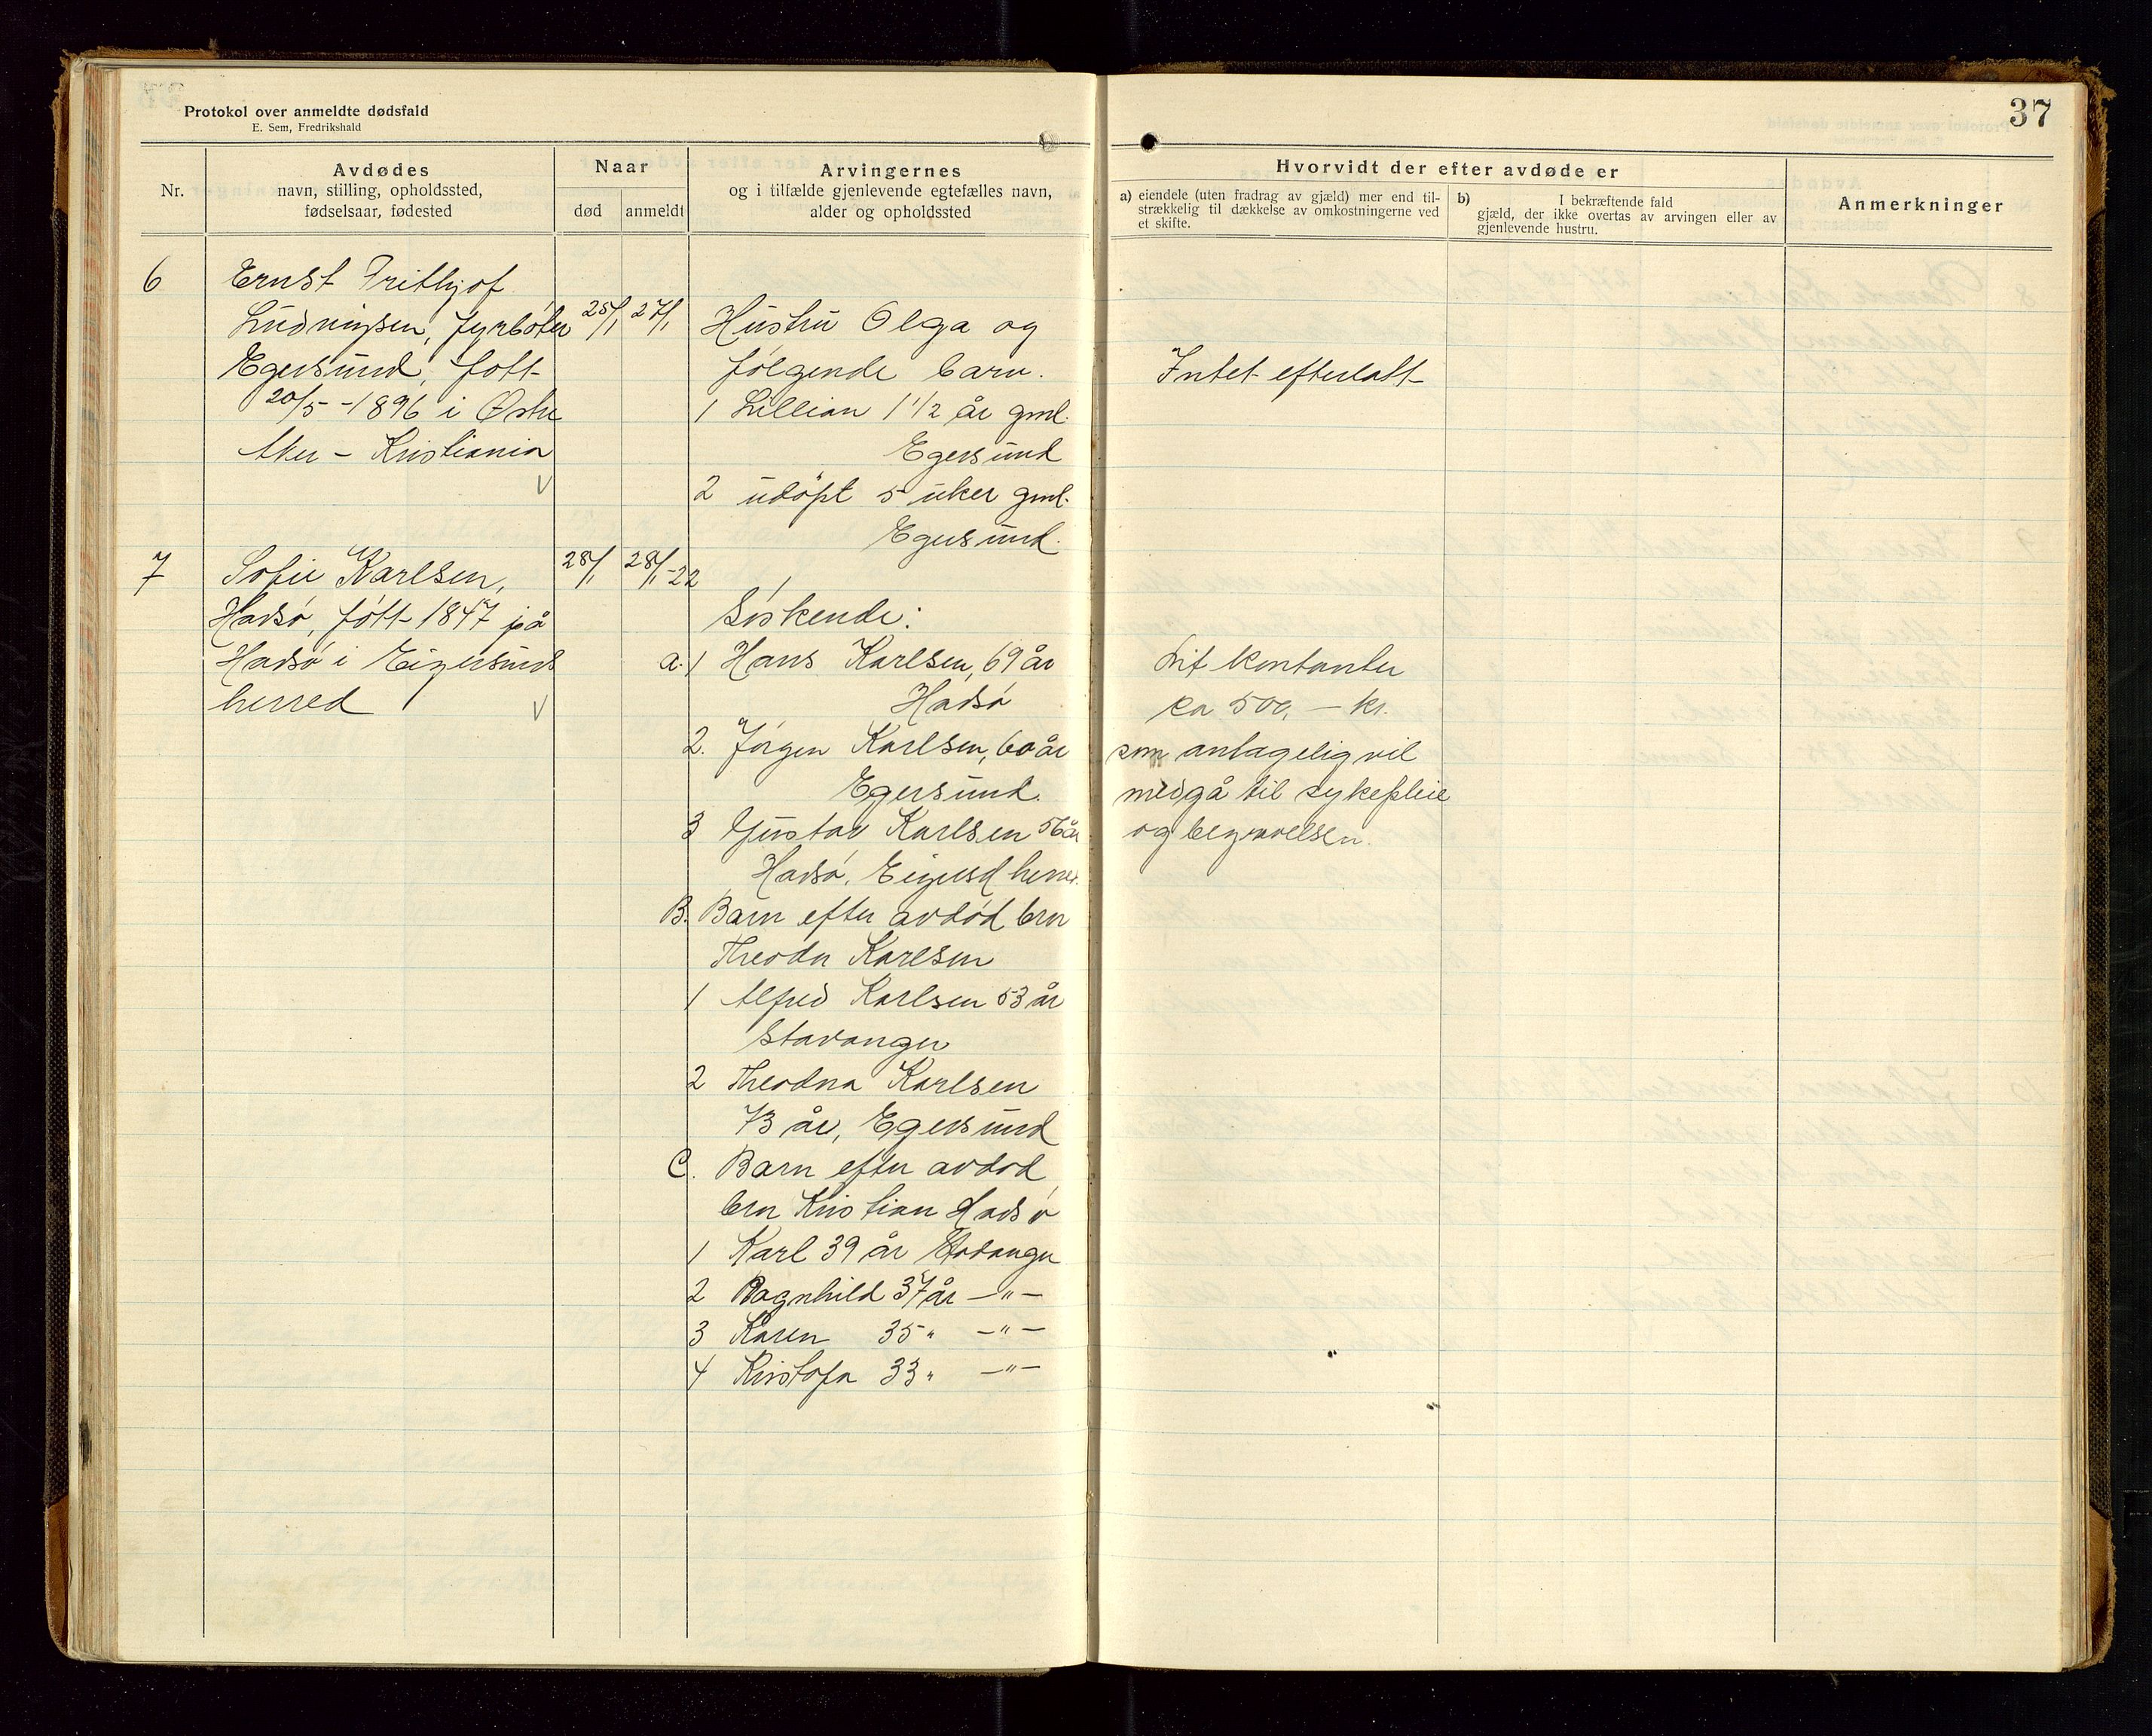 37
Protokol over anmeldte dødsfald
E. Sem, Fredrikshald
Nr.
Avdødes
navn, stilling, opholdssted,
fødselsaar, fødested
Naar
død
anmeldt
Arvingernes
og i tilfælde gjenlevende egtefælles navn,
alder og opholdssted
Hvorvidt der efter avdøde er
a) eiendele (uten fradrag av gjæld) mer end til-
strækkelig til dækkelse av omkostningerne ved
et skifte.
b) I bekræftende fald
gjæld, der ikke overtas av arvingen eller av
gjenlevende hustru.
Anmerkninger
6
Ernst Frithjof
Ludvigsen, fyrbøter
Egersund, fött
20/5-1896 i Østre
Aker - Kristiania
25/1
27/1
Hustru Olga og
følgende barn.
1 Lillian 1 1/2 år gml.
Egersund
2 udöpt 5 uker gml.
Egersund.
Intet efterlatt
7
Sofie Karlsen,
Hadsø, fött 1847 på
Hadsø i Eigersund
herred
28/1
28/1-22
Söskende:
a. 1 Hans Karlsen, 69 år
Hadsø
2. Jörgen Karlsen, 60 år
Egersund.
3 Gustav Karlsen 56 år
Hadsø, Eigersd herred.
B. Barn efter avdöd bror
Theodor Karlsen
1 Alfred Karlsen 53 år
Stavanger
2 Theodora Karlsen
43 år, Egersund
C. Barn efter avdöd
bror Kristian Hadsø
1 Karl 39 år Stavanger
2 Ragnhild 37 år -"-
3 Karen 35 " -"-
4 Kristofa 33 " -"-
Lit kontanter
ca 500,- kr.
som antagelig vil
medgå til sykepleie
og begravelsen.